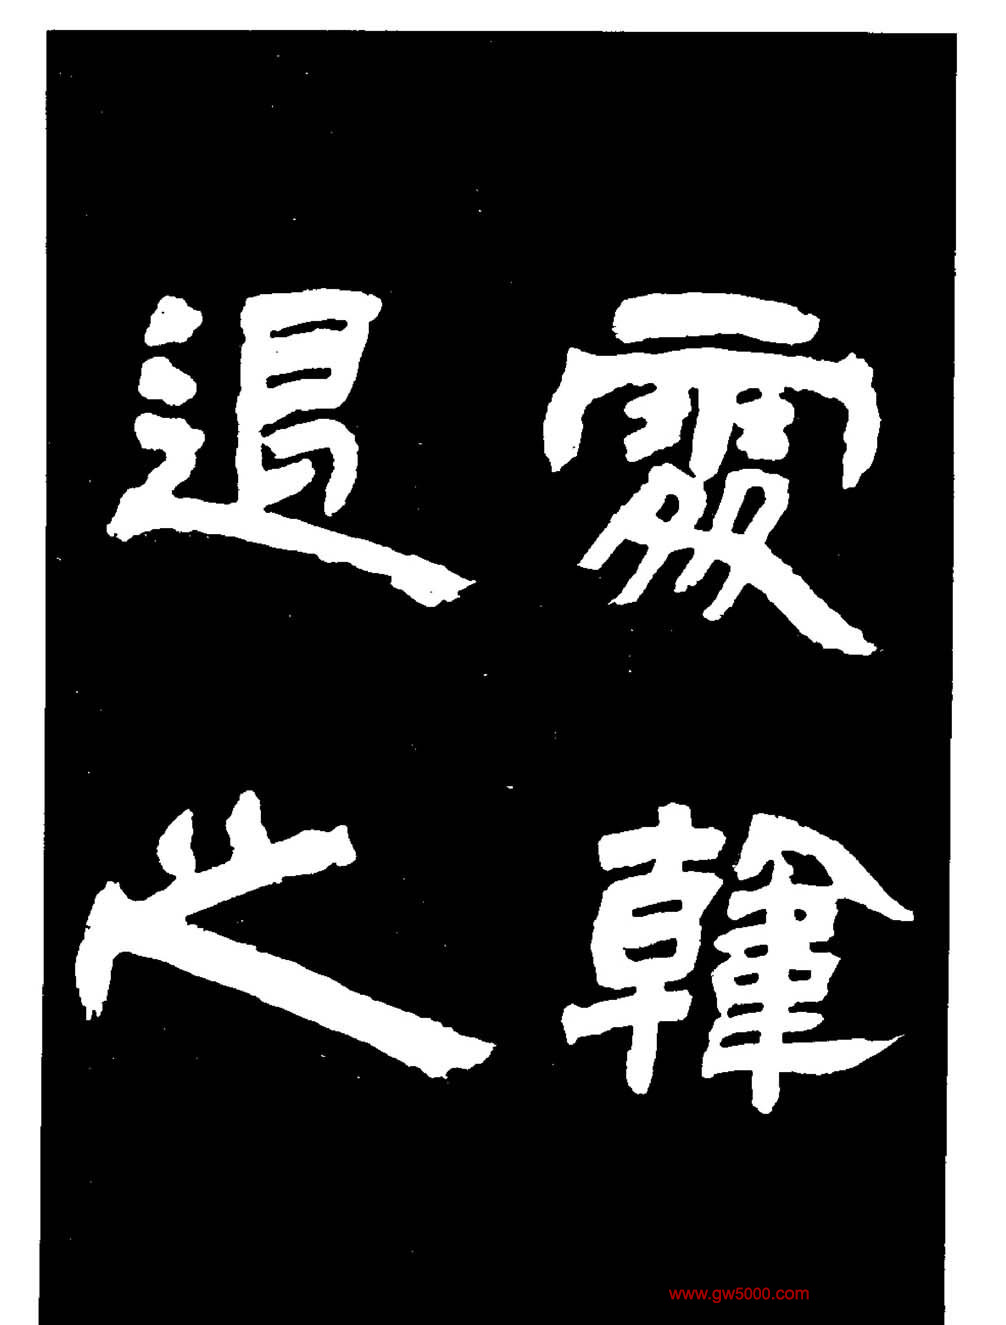 韓
退之
www.gw5000.com